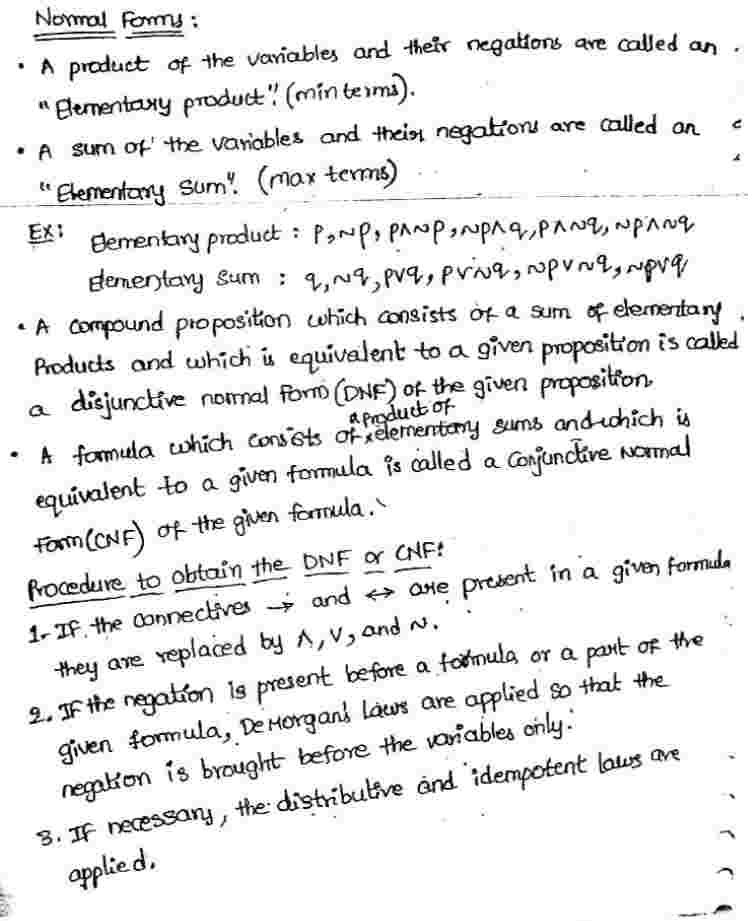 Normal Forms :
• A product of the variables and their negations are called an
"Elementary product". (min terms).
• A sum of the variables and their negations are called an
"Elementary sum". (max terms)
Ex: Elementary product : P, ~P, P∧~P, ~P∧q, P∧~q, ~P∧~q
Elementary sum : q, ~q, P∨q, P∨~q, ~P∨~q, ~P∨q
• A compound proposition which consists of a sum of elementary
Products and which is equivalent to a given proposition is called
a disjunctive normal form (DNF) of the given proposition.
a product of
• A formula which consists of x elementary sums and which is
equivalent to a given formula is called a Conjunctive Normal
Form (CNF) of the given formula.
Procedure to obtain the DNF or CNF:
1. If the connectives → and ↔ are present in a given formula
they are replaced by ∧, ∨, and ~.
2. If the negation is present before a formula or a part of the
given formula, De Morgan's Laws are applied so that the
negation is brought before the variables only.
3. If necessary, the distributive and idempotent laws are
applied.